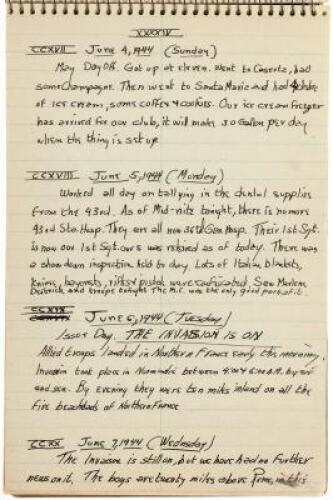 XXXXIV
CCXVII June 4, 1944 (Sunday)
My Day Off. Got up at eleven. Went to Caserta, had
some Champagne. Then went to Santa Maria and had 4 plates
of ice cream, some coffee & cookies. Our ice cream freezer
has arrived for our club, it will make 30 Gallon per day
when the thing is set up
CCXVIII June 5, 1944 (Monday)
Worked all day on tallying in the dental supplies
from the 43rd. As of Mid-nite tonight, there is no more
43rd Sta. Hosp. They are all now 36th Gen Hosp. Their 1st Sgt.
is now our 1st Sgt. ours was retired as of today. There was
a show down inspection held to day. Lots of Italian blankets,
knives, bayonets, rifles & pistols were confiscated. Saw Marlene
Deitrich, and troupe tonight The M.C. was the only good part of it.
CCXIX June 6, 1944 (Tuesday)
Issue Day. THE INVASION IS ON
Allied troops landed in Northern France early this morning.
Invasion took place in Normandi between 4:00 & 6:00 A.M. by air
and sea. By evening they were ten miles inland on all the
five beachheads of Northern France
CCXX June 7, 1944 (Wednesday)
The Invasion is still on, but we have had no further
news on it. The boys are twenty miles above Rome, in this